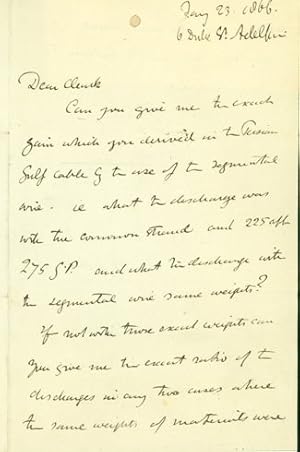 Jany 23. 1866.
6 Duke St. Adelphi
Dear Clark
Can you give me the exact
gain which you derived in the Persian
Gulf Cable by the use of the segmental
wire. ie what the discharge was
with the common strand and 225
275 G.P. and what the discharge with
the segmental wire same weights?
If not with those exact weights can
you give me the exact ratio of the
discharges in any two cases where
the same weights of materials were